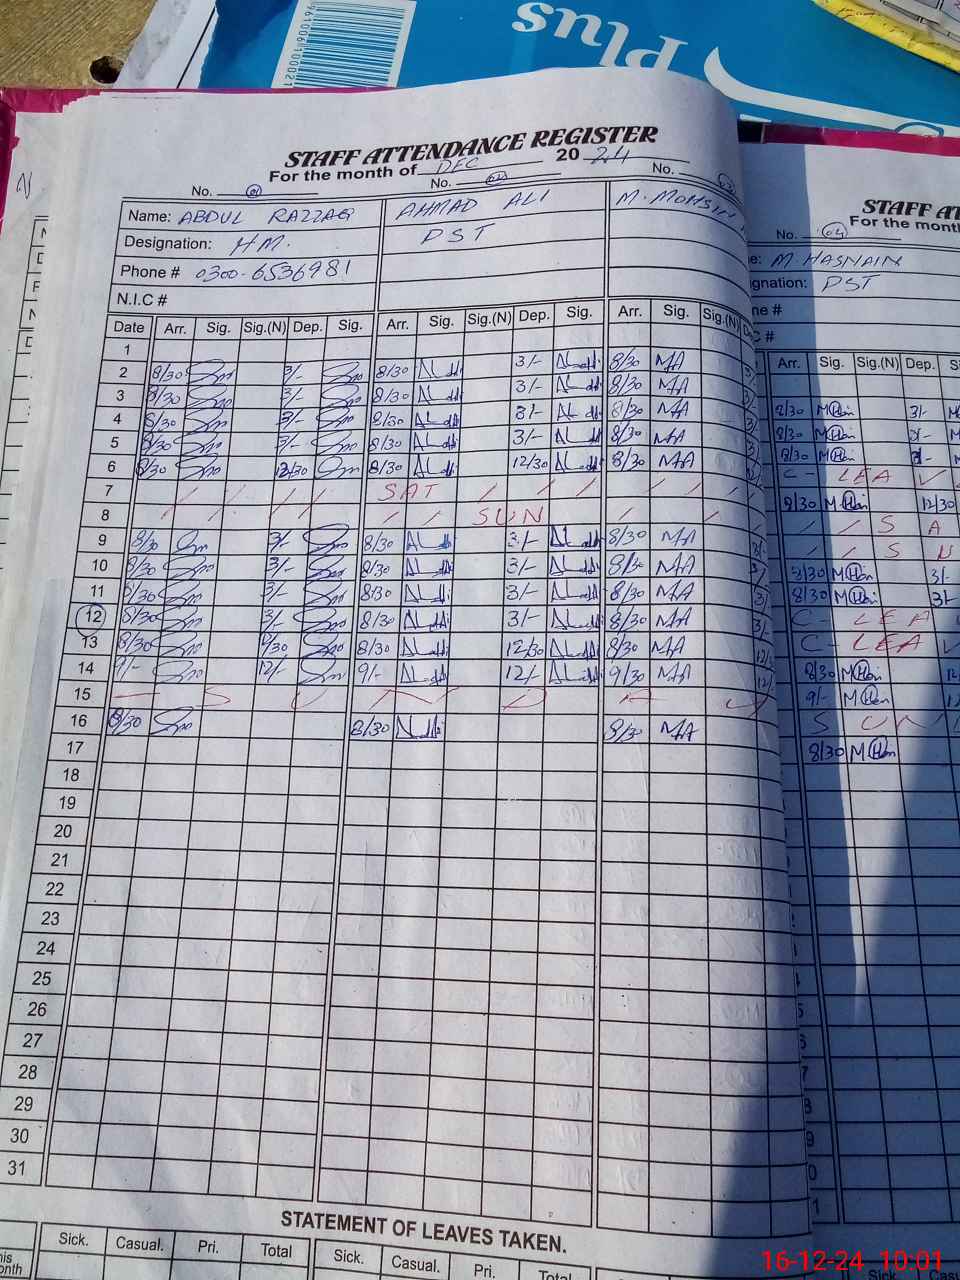 961006 100021
Plus
STAFF ATTENDANCE REGISTER
For the month of DEC 2024
No. 01 No. 02 No. 03
Name: ABDUL RAZZAQ AHMAD ALI M. MOHSIN
Designation: H.M. PST
Phone # 0300-6536981
N.I.C #
Date Arr. Sig. Sig.(N) Dep. Sig. Arr. Sig. Sig.(N) Dep. Sig. Arr. Sig. Sig.(N)
1
2 8/30 3/- 8/30 3/- 8/30 MA
3 8/30 3/- 8/30 3/- 8/30 MA
4 8/30 3/- 8/30 3/- 8/30 MA
5 8/30 3/- 8/30 3/- 8/30 MA
6 8/30 12/30 8/30 12/30 8/30 MA
7 SAT
8 SUN
9 8/30 3/- 8/30 3/- 8/30 MA
10 8/30 3/- 8/30 3/- 8/30 MA
11 8/30 3/- 8/30 3/- 8/30 MA
12 8/30 3/- 8/30 3/- 8/30 MA
13 8/30 8/30 12/30 8/30 MA
14 9/- 12/- 9/- 12/- 9/30 MA
15 SUNDAY
16 8/30 8/30 8/30 MA
17
18
19
20
21
22
23
24
25
26
27
28
29
30
31
STATEMENT OF LEAVES TAKEN.
Sick. Casual. Pri. Total Sick. Casual. Pri. Total
STAFF AT
For the month
No. 04
M. HASNAIN
gnation: PST
ne #
C #
Arr. Sig. Sig.(N) Dep.
8/30 3/-
8/30 3/-
8/30 3/-
C - LEAV
8/30 12/30
S A
S N
8/30 3/-
8/30 3/-
C - LEA
C - LEAV
8/30
9/-
SUN
8/30
16-12-24 10:01